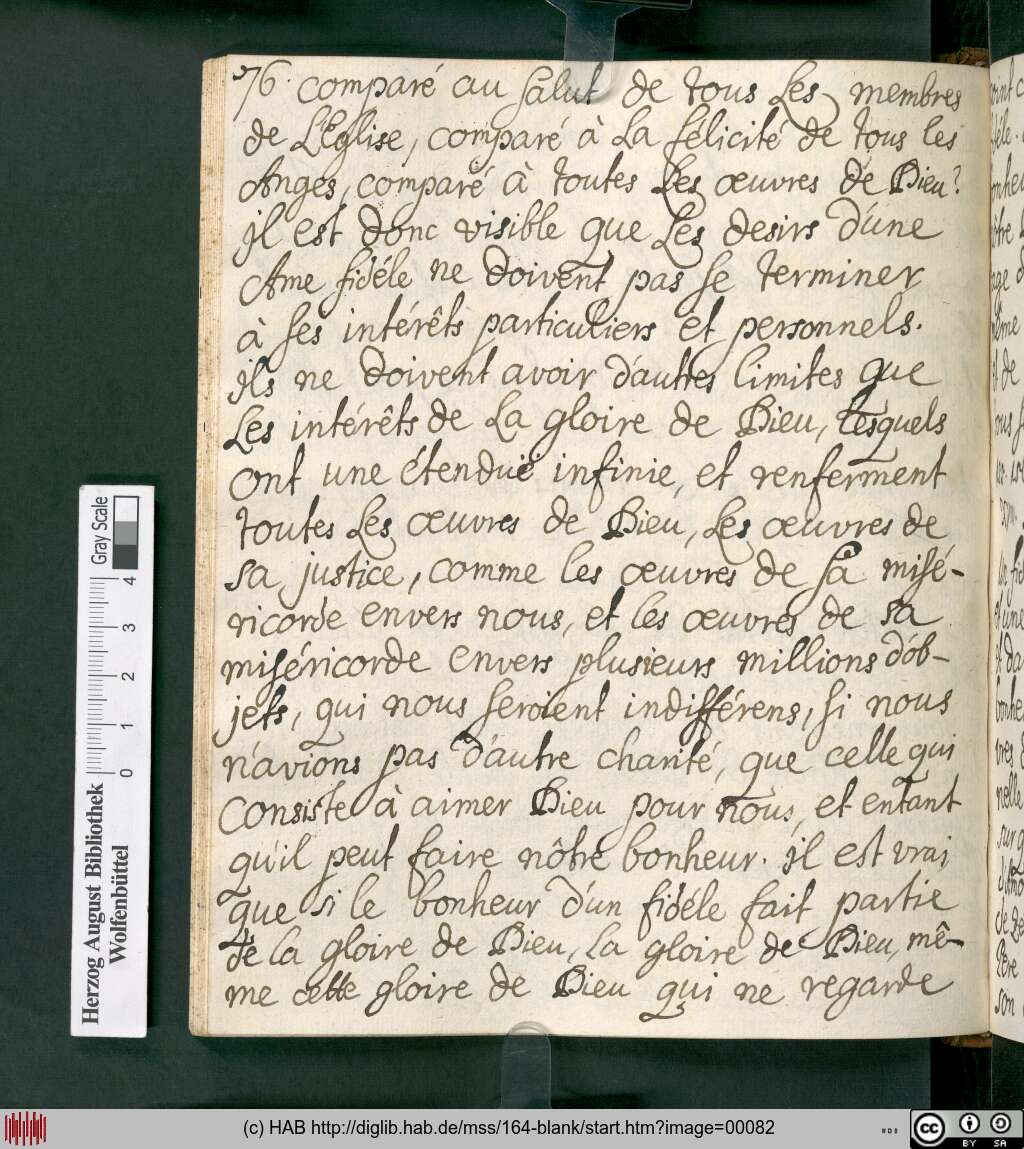 76. comparé au salut de tous Les membres
de L'Eglise, comparé à La félicité de tous les
Anges, comparé à toutes Les œuvres de Dieu?
il est donc visible que Les desirs d'une
Ame fidéle ne doivent pas se terminer
à ses intérêts particuliers et personnels.
ils ne doivent avoir d'autres limites que
Les intérêts de La gloire de Dieu, lesquels
ont une étenduë infinie, et renferment
toutes Les œuvres de Dieu, Les œuvres de
sa justice, comme les œuvres de sa misé-
ricorde envers nous, et les œuvres de sa
miséricorde envers plusieurs millions d'ob-
jets, qui nous seroient indifférens, si nous
n'avions pas d'autre charité, que celle qui
consiste à aimer Dieu pour nous, et entant
qu'il peut faire nôtre bonheur. il est vrai
que si le bonheur d'un fidéle fait partie
de la gloire de Dieu, la gloire de Dieu, mê-
me cette gloire de Dieu qui ne regarde
Herzog August Bibliothek
Wolfenbüttel
0 1 2 3 4
Gray Scale
(c) HAB http://diglib.hab.de/mss/164-blank/start.htm?image=00082
cc BY SA